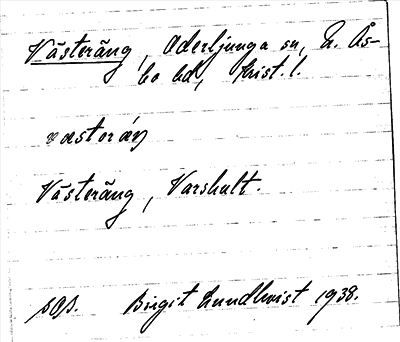 Västeräng, Aderljunga sn, N. Ås-
bo hd, Krist. l.
væstoráŋ
Västeräng, Varshult.
sOs. Birgit Lundkvist 1938.